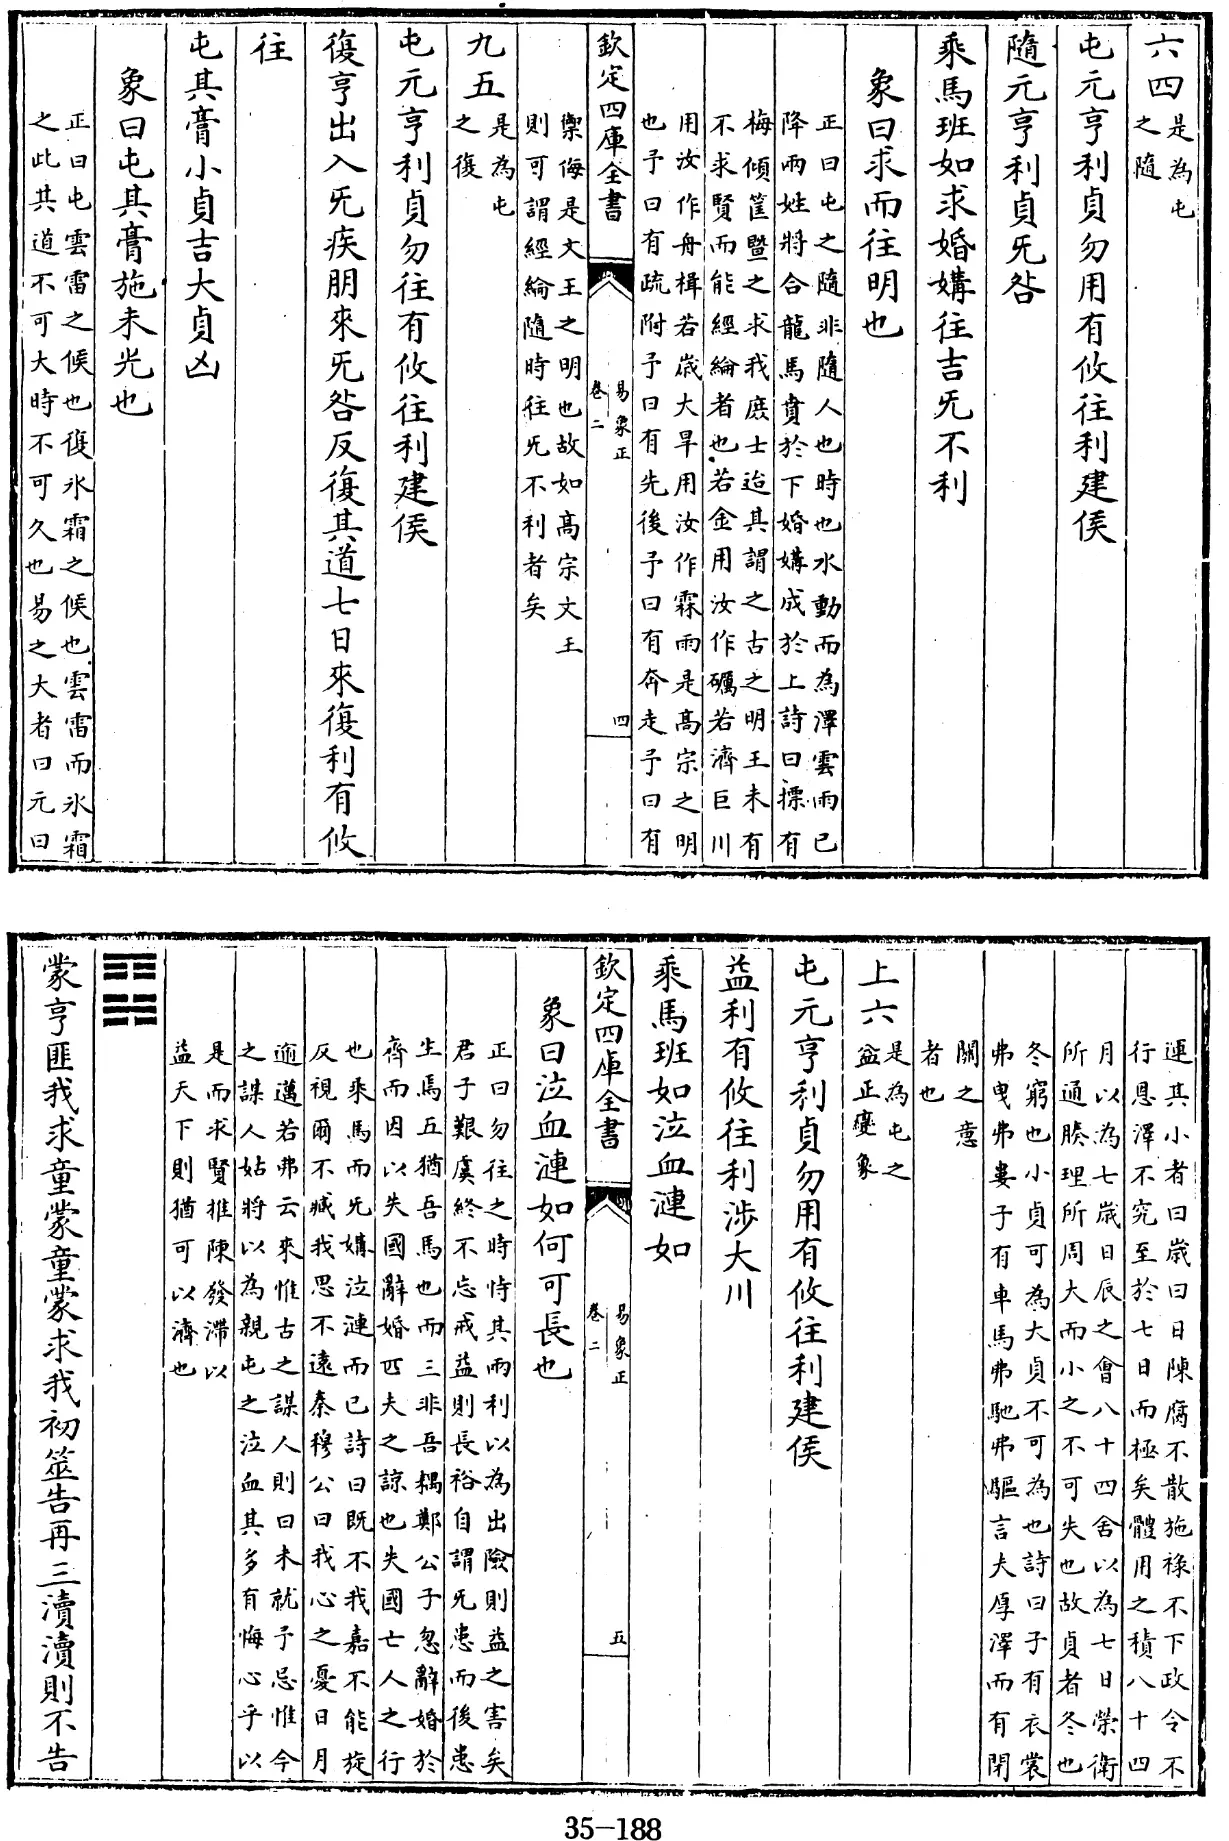 六四
是為屯
之隨
屯元亨利貞勿用有攸往利建侯
隨元亨利貞旡咎
乘馬班如求婚媾往吉旡不利
象曰求而往明也
正曰屯之隨非隨人也時也水動而為澤雲雨已
降兩姓將合龍馬賁於下婚媾成於上詩曰摽有
梅傾筐塈之求我庶士迨其謂之古之明王未有
不求賢而能經綸者也若金用汝作礪若濟巨川
用汝作舟楫若歲大旱用汝作霖雨是高宗之明
也予曰有疏附予曰有先後予曰有奔走予曰有
欽定四庫全書
易象正
卷二
四
禦侮是文王之明也故如高宗文王
則可謂經綸隨時往旡不利者矣
九五
是為屯
之復
屯元亨利貞勿往有攸往利建侯
復亨出入旡疾朋來旡咎反復其道七日來復利有攸
往
屯其膏小貞吉大貞凶
象曰屯其膏施未光也
正曰屯雲雷之候也復氷霜之候也雲雷而氷霜
之此其道不可大時不可久也易之大者曰元曰
運其小者曰歲曰日陳腐不散施祿不下政令不
行恩澤不究至於七日而極矣體用之積八十四
月以為七歲日辰之會八十四舍以為七日榮衛
所通腠理所周大而小之不可失也故貞者冬也
冬窮也小貞可為大貞不可為也詩曰子有衣裳
弗曳弗婁子有車馬弗馳弗驅言夫厚澤而有閉
關之意
者也
上六
是為屯之
益正變象
屯元亨利貞勿用有攸往利建侯
益利有攸往利涉大川
乘馬班如泣血漣如
欽定四庫全書
易象正
卷二
五
象曰泣血漣如何可長也
正曰勿往之時恃其兩利以為出險則益之害矣
君子艱虞終不忘戒益則長裕自謂旡患而後患
生焉五猶吾馬也而三非吾耦鄭公子忽辭婚於
齊而因以失國辭婚匹夫之諒也失國亡人之行
也乘馬而旡媾泣漣而已詩曰既不我嘉不能旋
反視爾不臧我思不遠秦穆公曰我心之憂日月
逾邁若弗云來惟古之謀人則曰未就予忌惟今
之謀人姑將以為親屯之泣血其多有悔心乎以
是而求賢推陳發滯以
益天下則猶可以濟也
蒙亨匪我求童蒙童蒙求我初筮告再三瀆瀆則不告
35-188